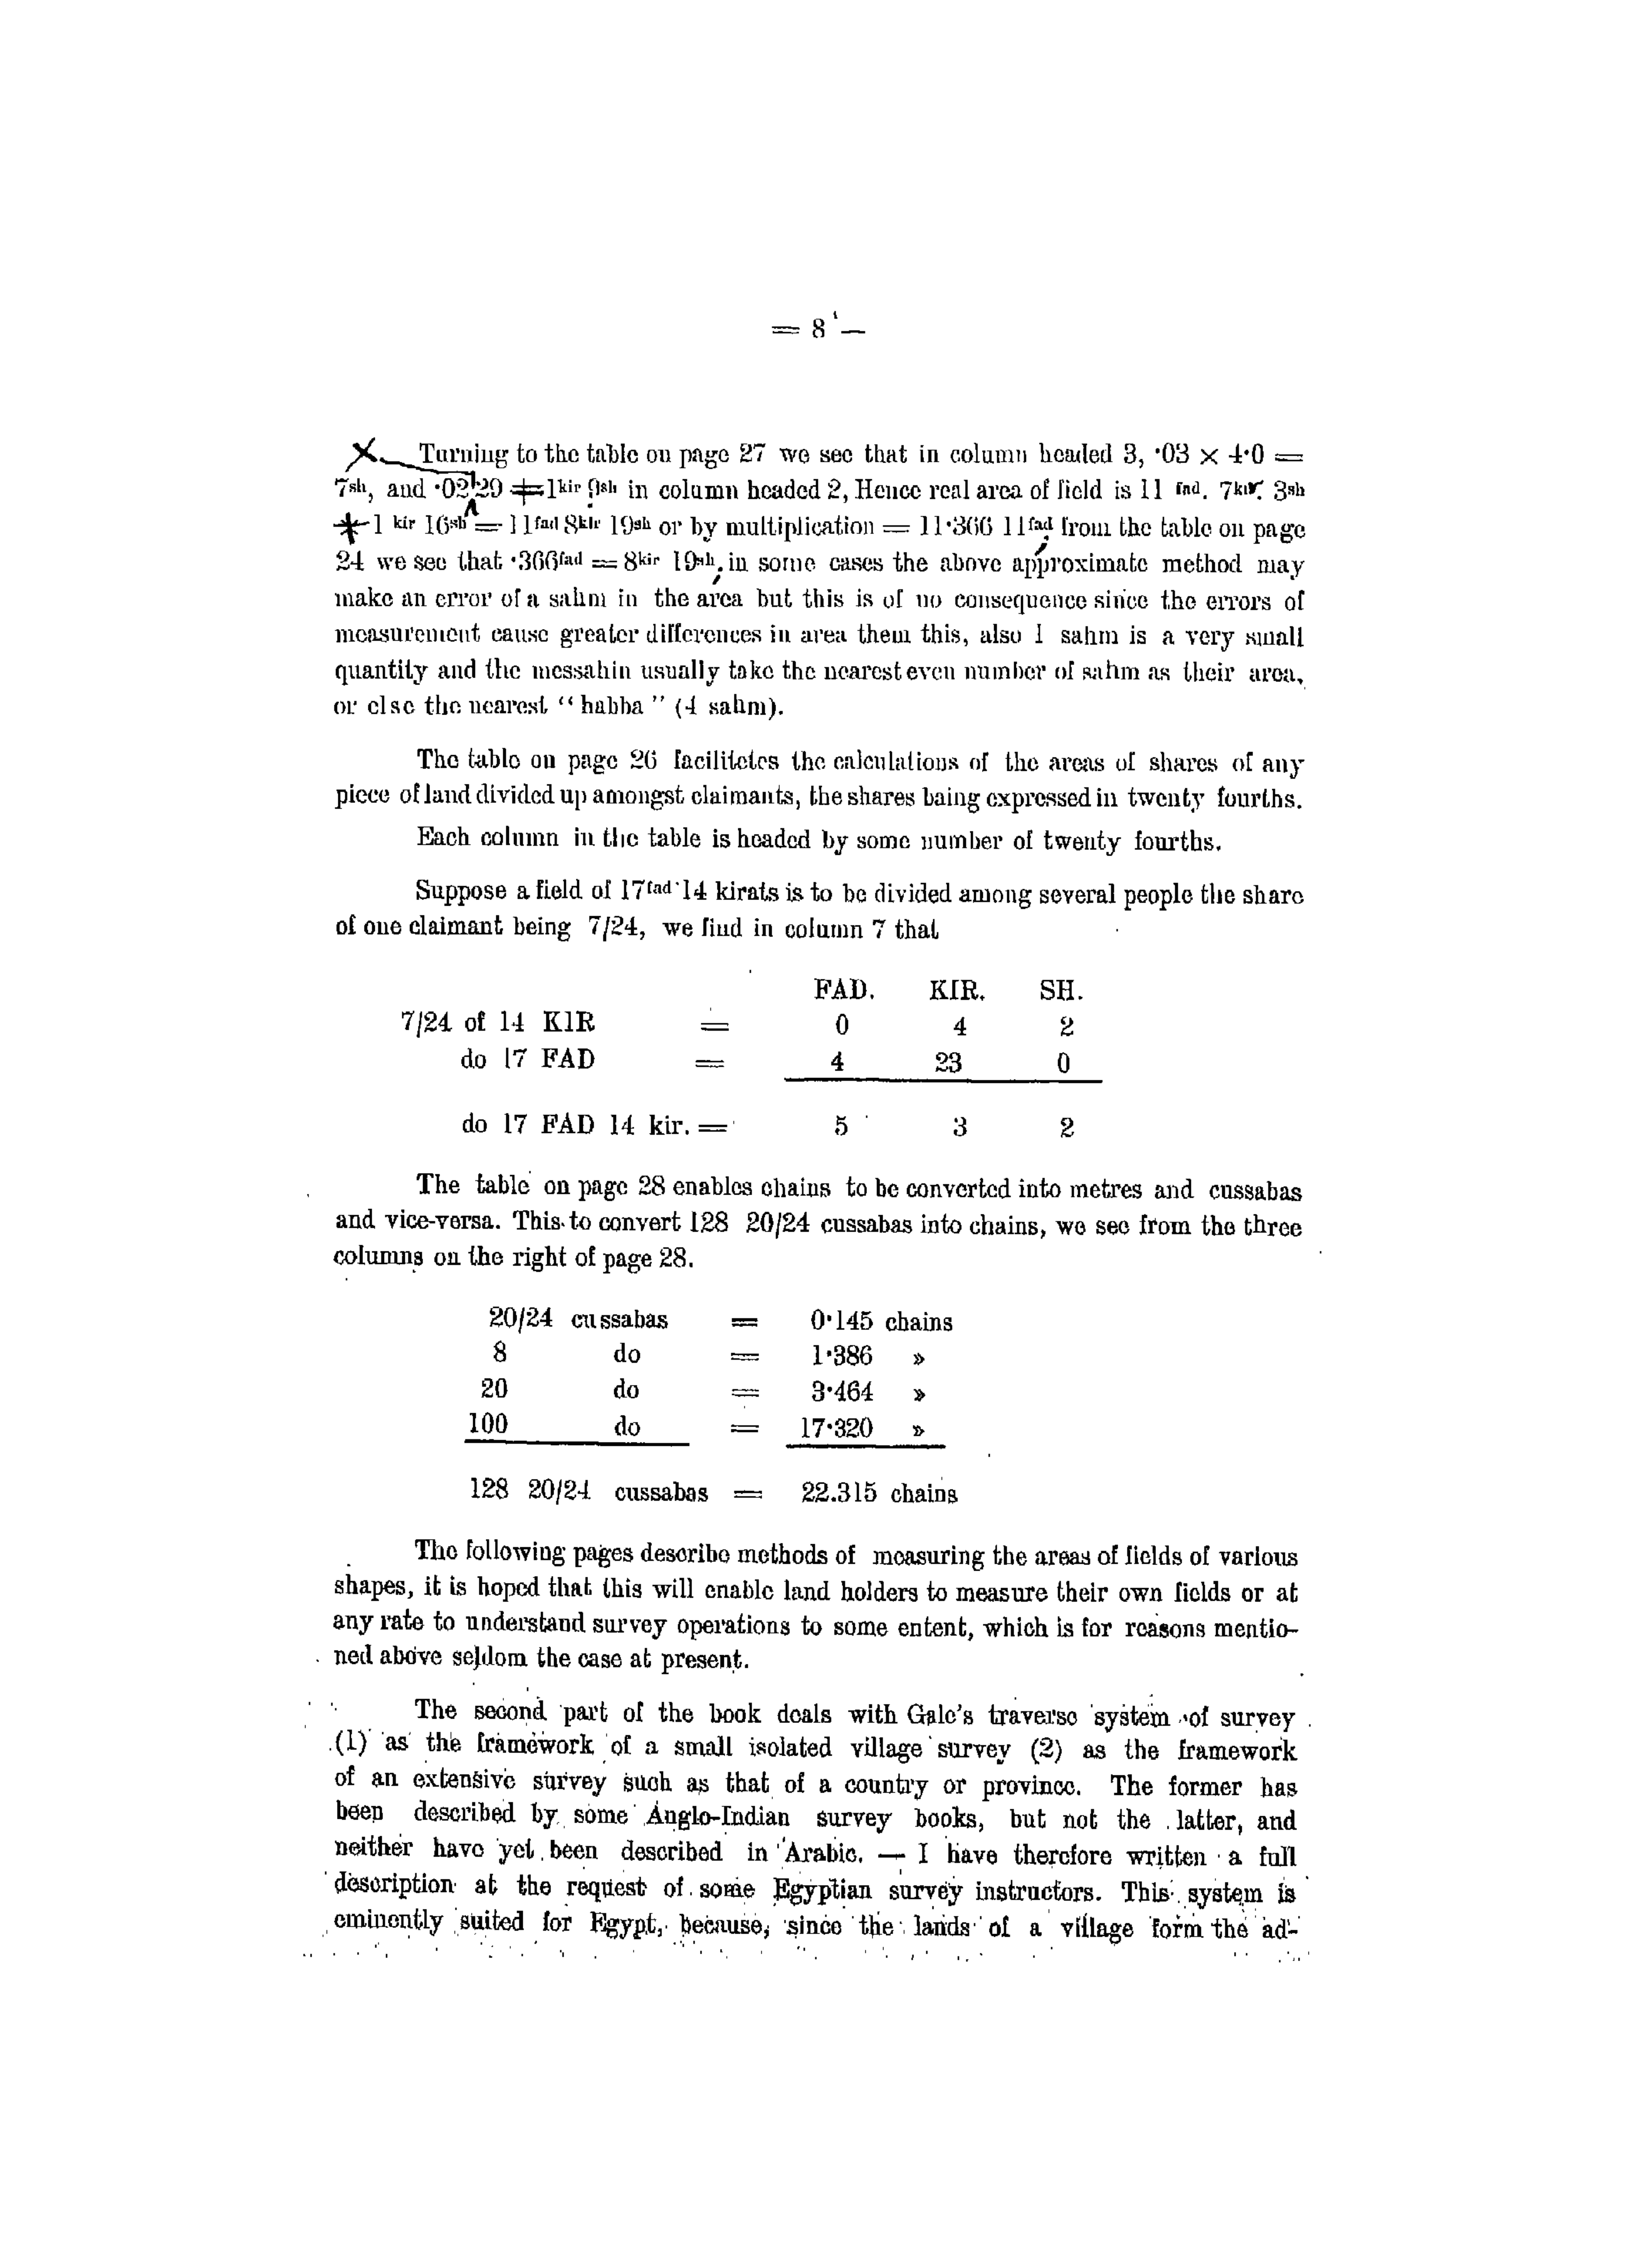 = 8 —
Turning to the table on page 27 we see that in column headed 3, ·03 × 4·0 =
7sh, and ·02 29 = 1kir 9sh in column headed 2, Hence real area of field is 11 fad. 7kir. 3sh
+ 1 kir 16sh = 11fad 8kir 19sh or by multiplication = 11·366 11fad, from the table on page
24 we see that ·366fad = 8kir 19sh, in some cases the above approximate method may
make an error of a sahm in the area but this is of no consequence since the errors of
measurement cause greater differences in area them this, also 1 sahm is a very small
quantity and the messahin usually take the nearest even number of sahm as their area,
or else the nearest “ habba ” (4 sahm).
The table on page 26 facilitetes the calculations of the areas of shares of any
piece of land divided up amongst claimants, the shares baing expressed in twenty fourths.
Each column in the table is headed by some number of twenty fourths.
Suppose a field of 17fad 14 kirats is to be divided among several people the share
of one claimant being 7/24, we find in column 7 that
FAD. KIR. SH.
7/24 of 14 KIR = 0 4 2
do 17 FAD = 4 23 0
do 17 FAD 14 kir. = 5 3 2
The table on page 28 enables chains to be converted into metres and cussabas
and vice-versa. This to convert 128 20/24 cussabas into chains, we see from the three
columns on the right of page 28.
20/24 cussabas = 0·145 chains
8 do = 1·386 »
20 do = 3·464 »
100 do = 17·320 »
128 20/24 cussabas = 22.315 chains
The following pages describe methods of measuring the areas of fields of various
shapes, it is hoped that this will enable land holders to measure their own fields or at
any rate to understand survey operations to some entent, which is for reasons mentio-
ned above seldom the case at present.
The second part of the book deals with Gale's traverse system of survey
(1) as the framework of a small isolated village survey (2) as the framework
of an extensive survey such as that of a country or province. The former has
been described by some Anglo-Indian survey books, but not the latter, and
neither have yet been described in Arabic. — I have therefore written a full
description at the request of some Egyptian survey instructors. This system is
eminently suited for Egypt, because, since the lands of a village form the ad-